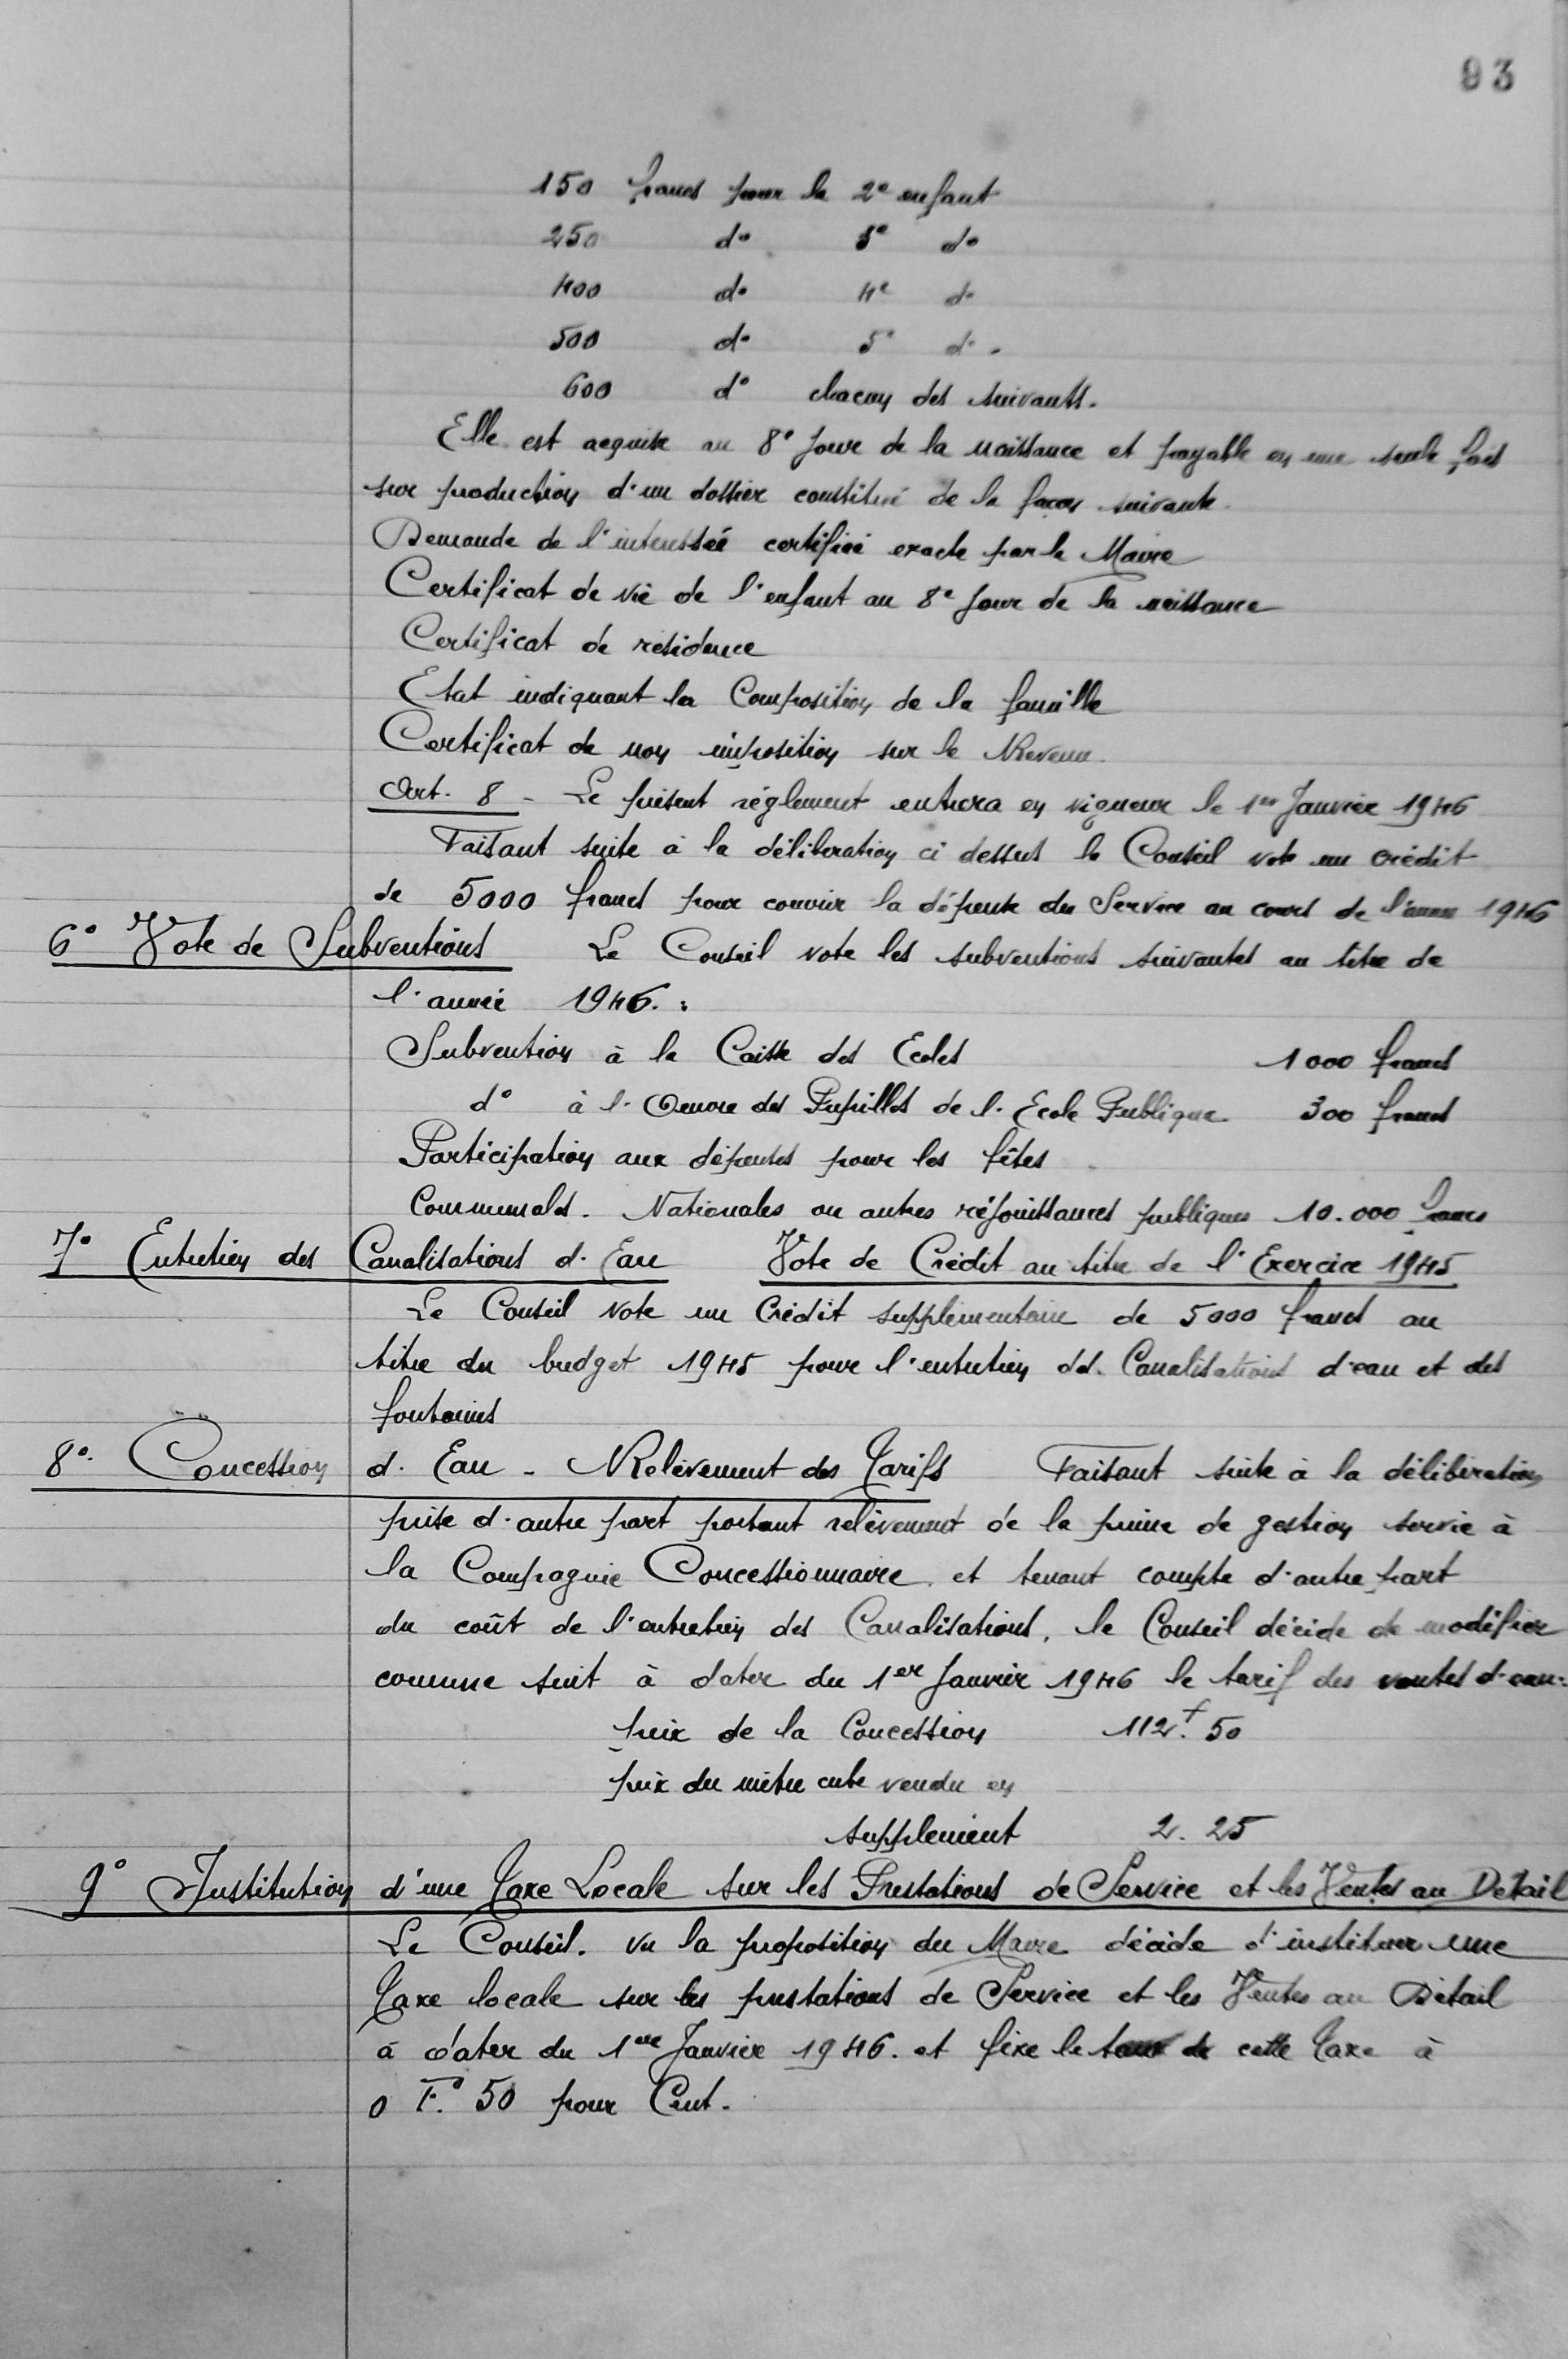 93
150 francs pour le 2e enfant
250 do 3e do
400 do 4e do
500 do 5e do
600 do chacun des suivants.
Elle est acquise au 8e jour de la naissance et payable en une seule fois
sur production d'un dossier constitué de la façon suivante.
Demande de l'interessée certifiée exacte par le Maire
Certificat de vie de l'enfant au 8e jour de la naissance
Certificat de résidence
Etat indiquant la Composition de la famille
Certificat de non imposition sur le Revenu.
Art. 8 - Le présent réglement entrera en vigueur le 1er Janvier 1946
Faisant suite à la délibération ci dessus le Conseil vote un crédit
de 5000 francs pour couvrir la dépense du Service au cours de l'année 1946
6° Vote de Subventions Le Conseil vote les subventions suivantes au titre de
l'année 1946. :
Subvention à la Caisse des Ecoles 1000 francs
d° à l'Oeuvre des Pupilles de l'Ecole Publique 300 francs
Participation aux dépenses pour les fêtes
Communales. Nationales ou autres réjouissances publiques 10.000 francs
7° Entretien des Canalisations d'Eau Vote de Crédit au titre de l'Exercice 1945
Le Conseil vote un Crédit supplémentaire de 5000 francs au
titre du budget 1945 pour l'entretien des Canalisations d'eau et des
fontaines
8°. Concession d'Eau - Relèvement des Tarifs Faisant suite à la délibération
prise d'autre part portant relèvement de la prime de gestion servie à
la Compagnie Concessionnaire et tenant compte d'autre part
du coût de l'entretien des Canalisations, le Conseil décide de modifier
comme suit à dater du 1er Janvier 1946 le tarif des ventes d'eau:
prix de la Concession 112f. 50
prix du mètre cube vendu en
supplement 2. 25
9° Institution d'une Taxe Locale sur les Prestations de Service et les Ventes au Détail
Le Conseil. vu la proposition du Maire décide d'instituer une
Taxe locale sur les prestations de Service et les Ventes au Détail
à dater du 1er Janvier 1946. et fixe le taux de cette Taxe à
0 F. 50 pour Cent.